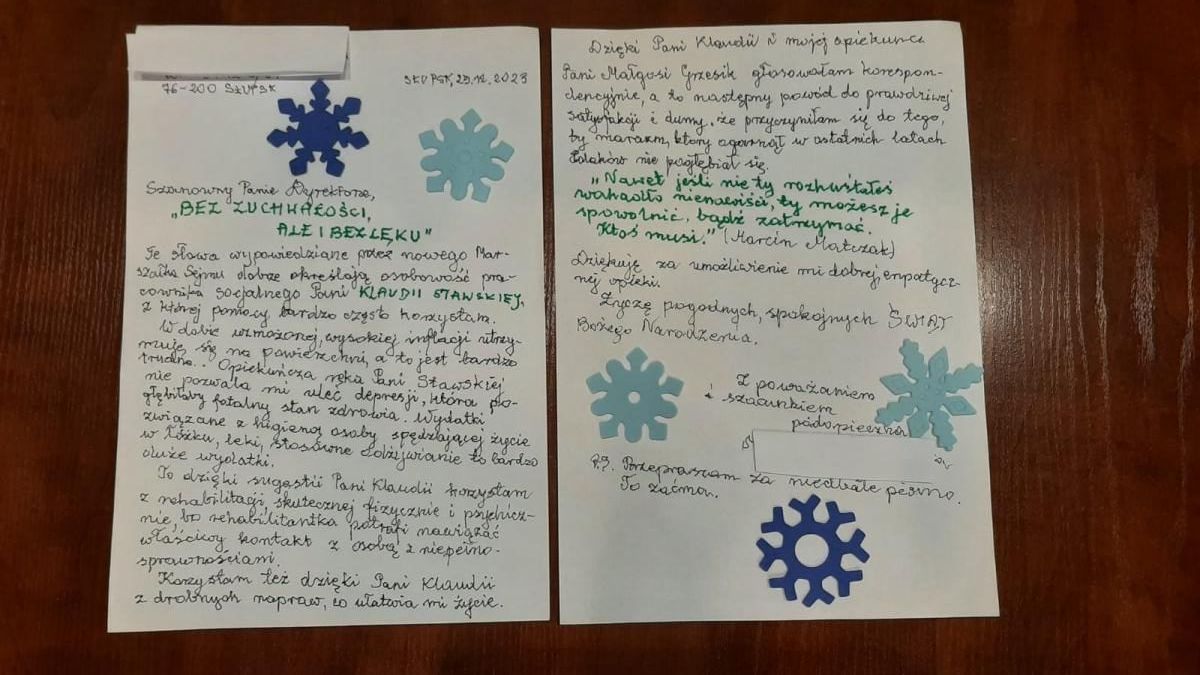 76-200 SŁUPSK
SŁUPSK, 23.12.2023
Szanowny Panie Dyrektorze,
„BEZ ZUCHWAŁOŚCI,
ALE I BEZ LĘKU"
Te słowa wypowiedziane przez nowego Mar-
szałka Sejmu dobrze określają osobowość pra-
cownika socjalnego Pani KLAUDII STAWSKIEJ,
z której pomocy bardzo często korzystam.
W dobie wzmożonej, wysokiej inflacji utrzy-
muję się na powierzchni, a to jest bardzo
trudne. Opiekuńcza ręka Pani Stawskiej
nie pozwala mi ulec depresji, która po-
głębiłaby fatalny stan zdrowia. Wydatki
związane z higieną osoby spędzającej życie
w łóżku, leki, stosowne odżywianie to bardzo
duże wydatki.
To dzięki sugestii Pani Klaudii korzystam
z rehabilitacji skutecznej fizycznie i psychicz-
nie, bo rehabilitantka potrafi nawiązać
właściwy kontakt z osobą z niepełno-
sprawnościami.
Korzystam też dzięki Pani Klaudii
z drobnych napraw, co ułatwia mi życie.
Dzięki Pani Klaudii i mojej opiekunce
Pani Małgosi Grzesik głosowałam korespon-
dencyjnie, a to następny powód do prawdziwej
satysfakcji i dumy, że przyczyniłam się do tego,
by marazm, który ogarnął w ostatnich latach
Polaków nie pogłębiał się.
„Nawet jeśli nie ty rozhuśtałeś
wahadło nienawiści, ty możesz je
spowolnić, bądź zatrzymać.
Ktoś musi." (Marcin Matczak)
Dziękuję za umożliwienie mi dobrej, empatycz-
nej opieki.
Życzę pogodnych, spokojnych ŚWIĄT
Bożego Narodzenia.
Z poważaniem
i szacunkiem
podopieczna
P.S. Przepraszam za niedbałe pismo.
To zaćma.